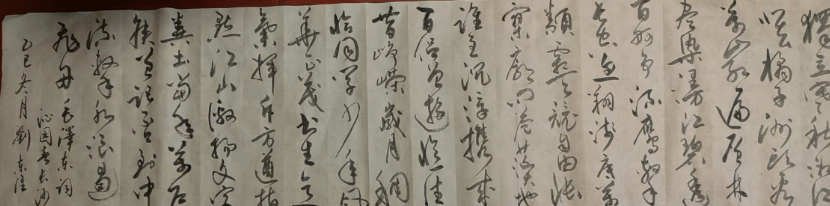 獨立寒秋湘江
橘子洲頭看
萬遍層林
盡染漫江碧透
百舸爭流鷹擊
長空魚翔淺底萬
類霜天競自由悵
寥廓問蒼茫大地
誰主沉浮攜來
百侶曾遊憶往
昔崢嶸歲月稠
恰同學少年風
華正茂書生意
氣揮斥方遒指
點江山激揚文字
糞土當年萬户
侯曾記否到中
流擊水浪遏
飛舟毛澤東詞
沁園春長沙
乙巳冬月劉東